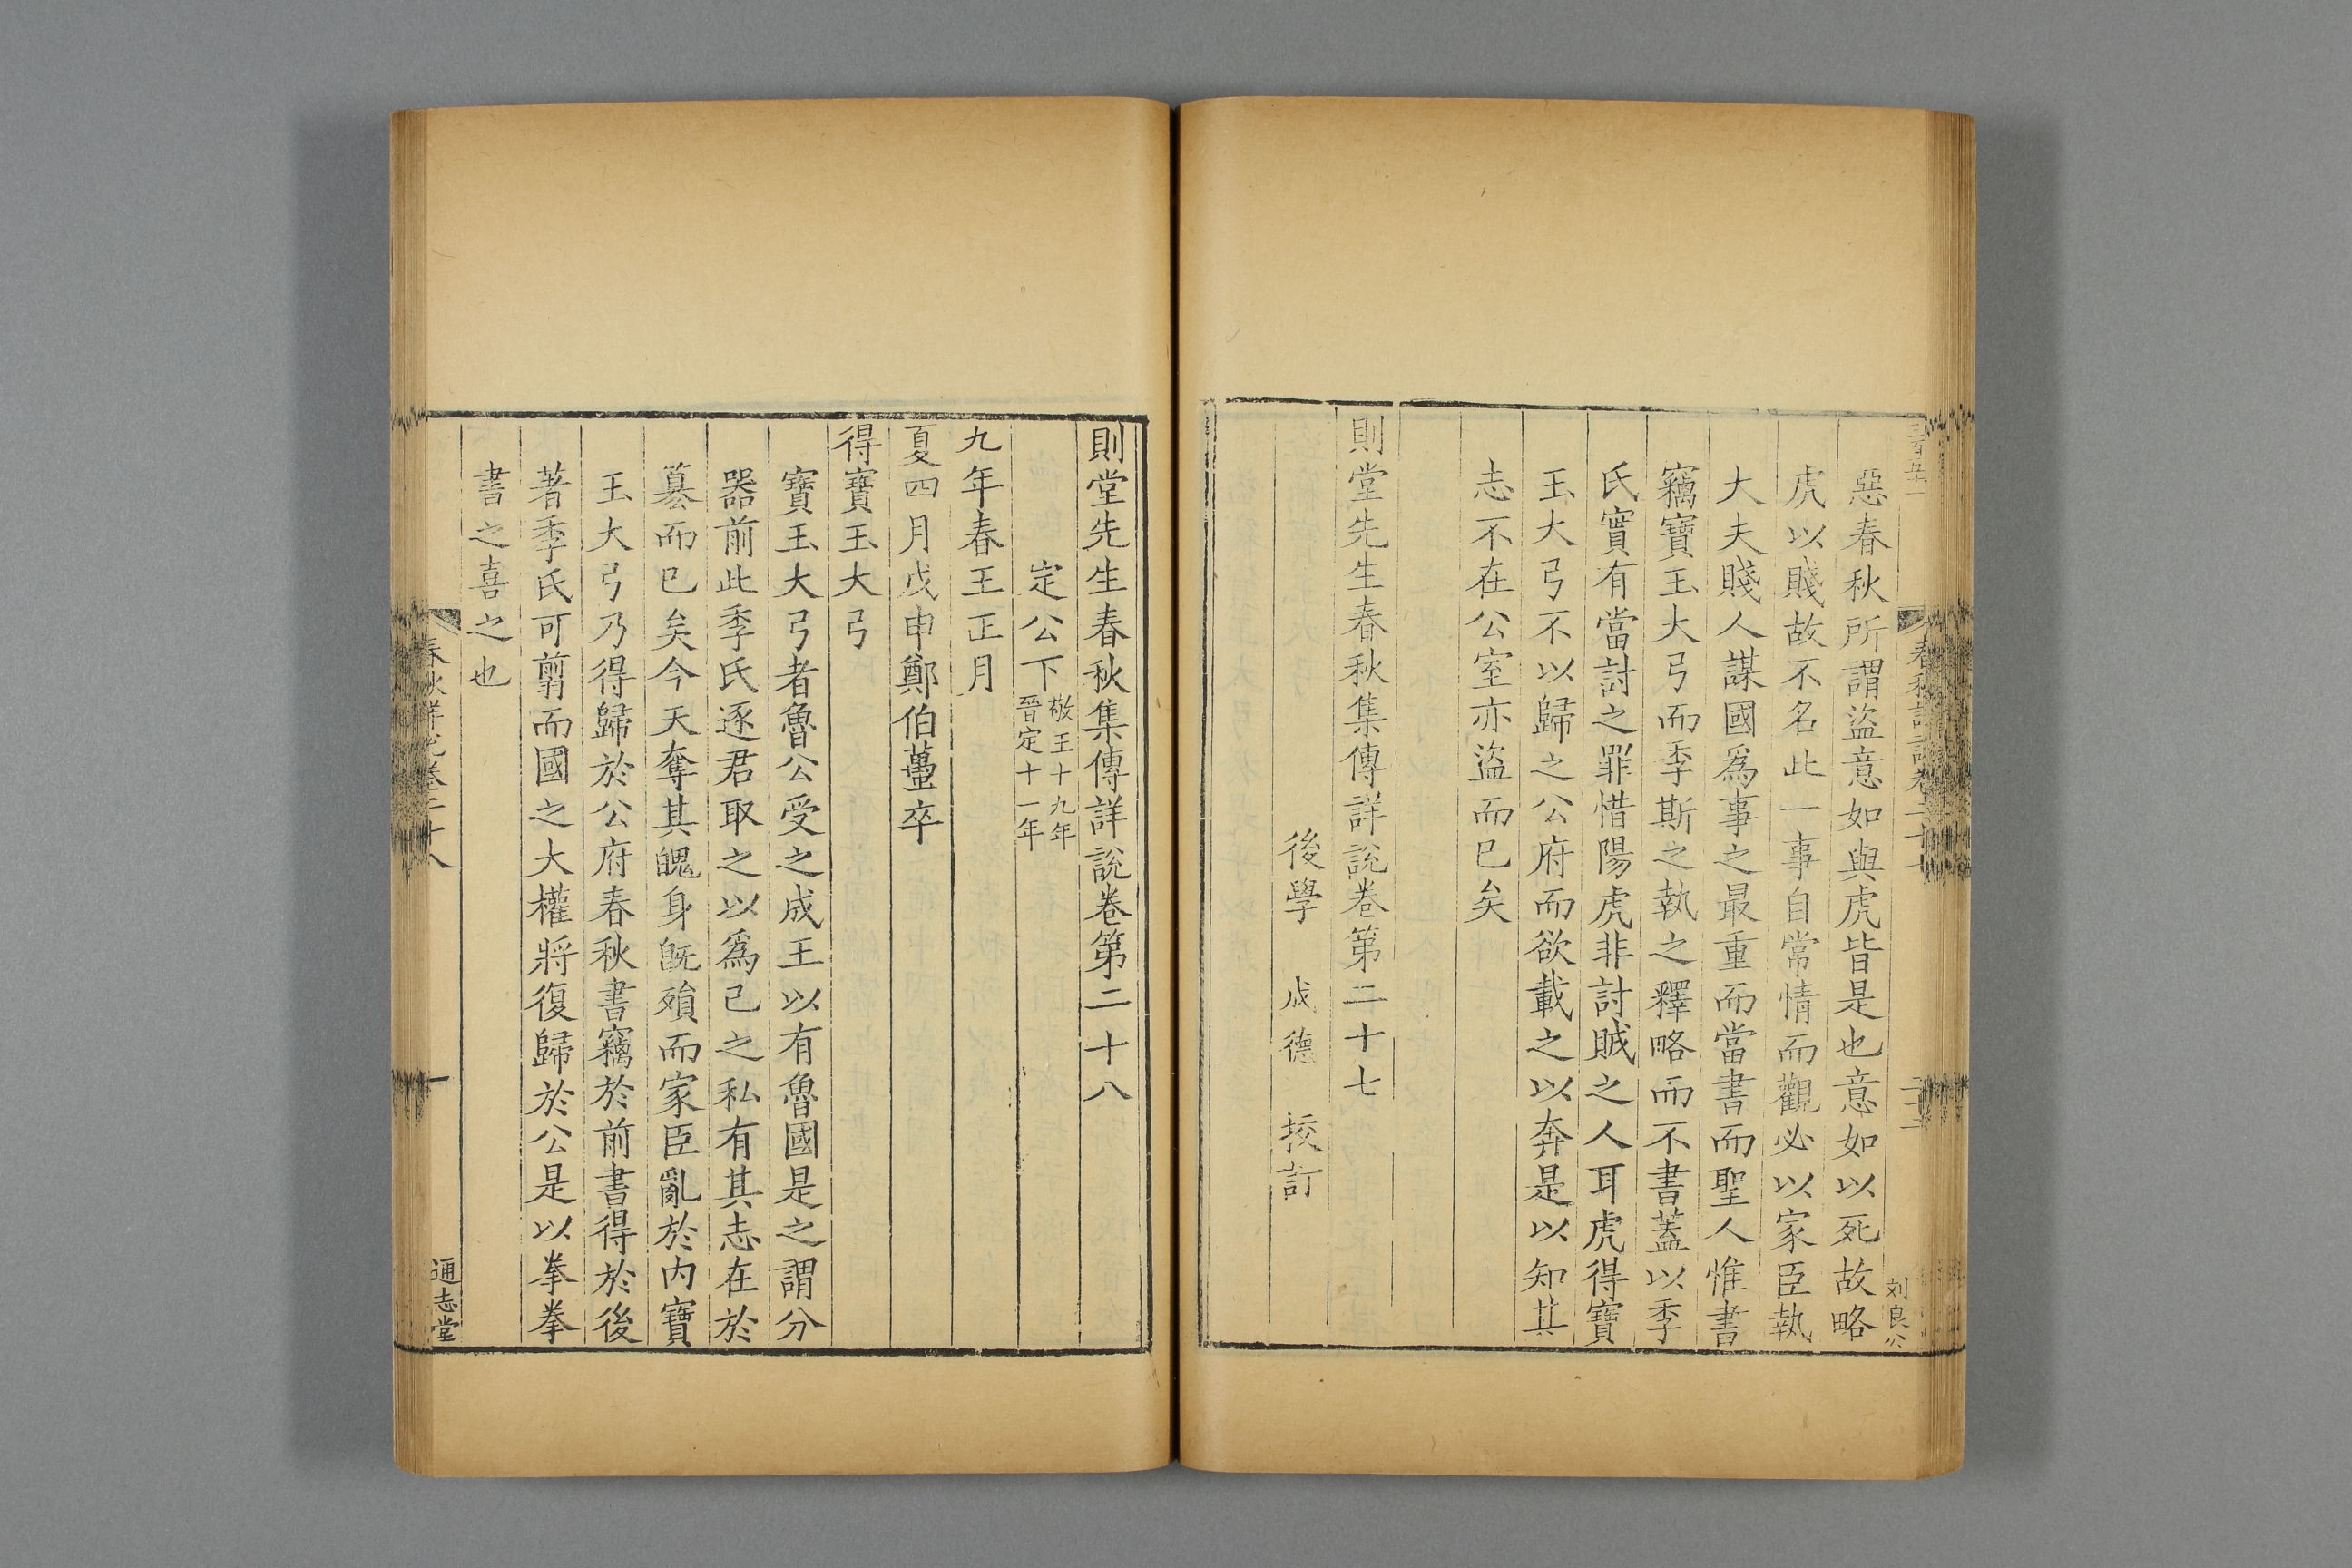 惡春秋所謂盜意如與虎皆是也意如以死故略
虎以賤故不名此一事自常情而觀必以家臣執
大夫賤人謀國爲事之最重而當書而聖人惟書
竊寶玉大弓而季斯之執之釋略而不書蓋以季
氏實有當討之罪惜陽虎非討賊之人耳虎得寶
玉大弓不以歸之公府而欲載之以奔是以知其
志不在公室亦盜而已矣
則堂先生春秋集傳詳說卷第二十七
後學 成德 挍訂
則堂先生春秋集傳詳說卷第二十八
定公下 敬王十九年 晉定十一年
九年春王正月
夏四月戊申鄭伯蠆卒
得寶玉大弓
寶玉大弓者魯公受之成王以有魯國是之謂分
器前此季氏逐君取之以爲己之私有其志在於
簒而已矣今天奪其魄身旣殞而家臣亂於内寶
玉大弓乃得歸於公府春秋書竊於前書得於後
著季氏可翦而國之大權將復歸於公是以拳拳
書之喜之也
通志堂